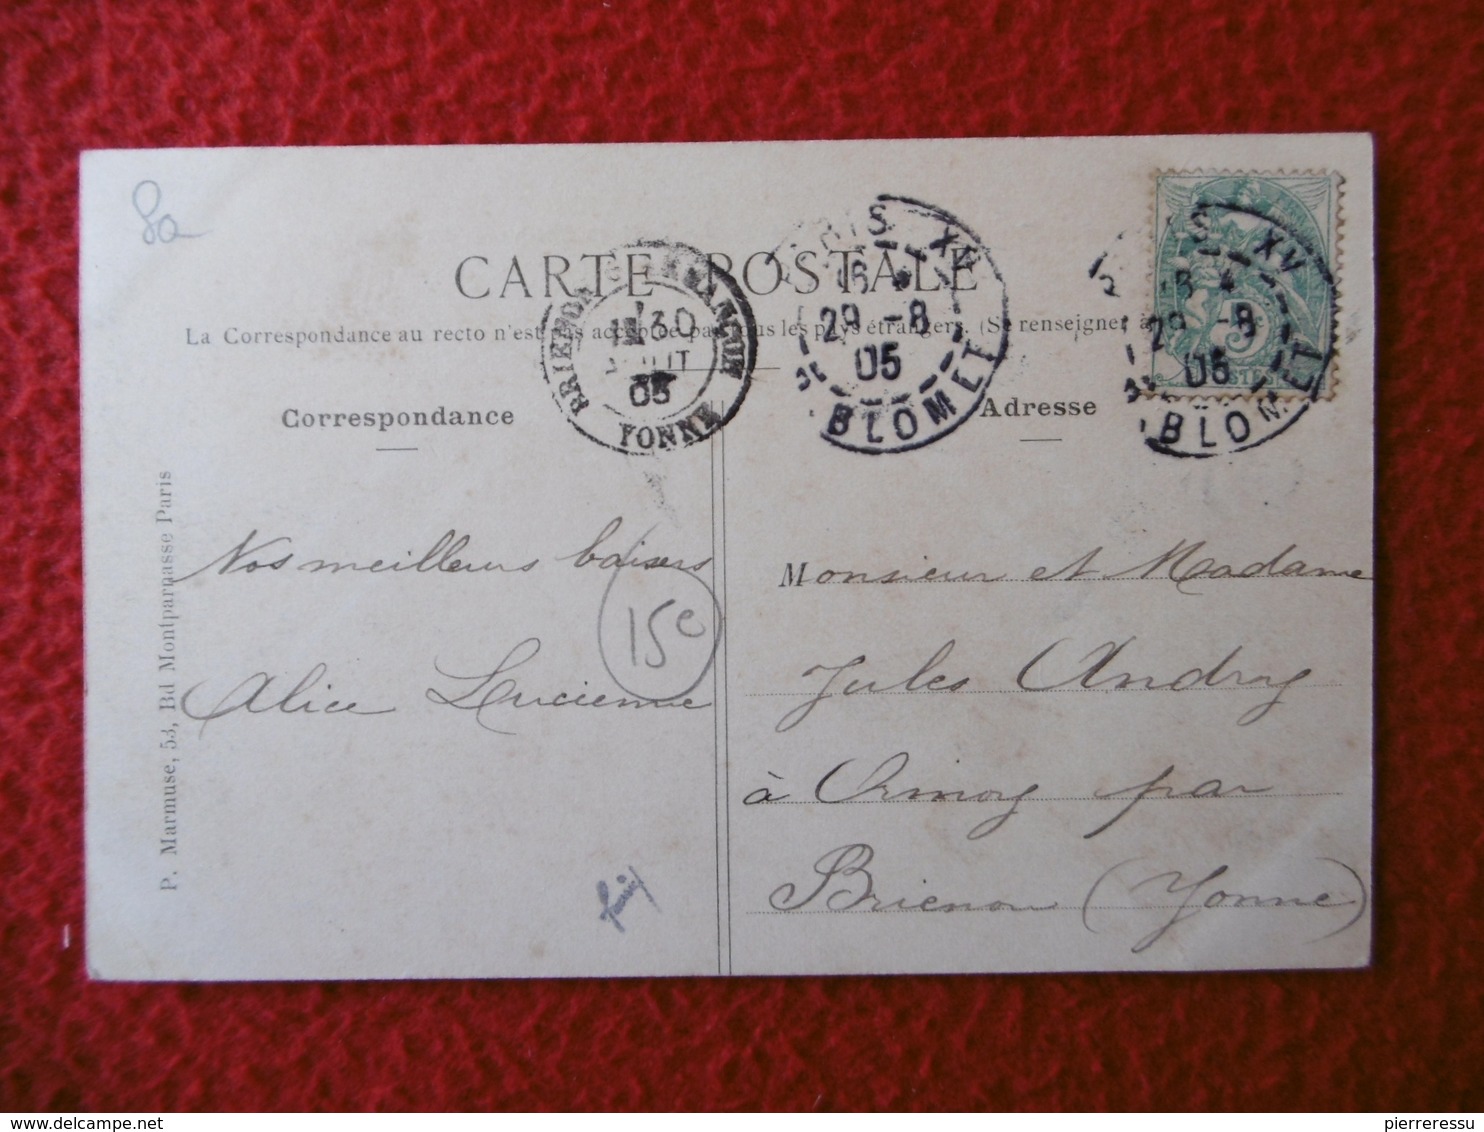 8a
CARTE POSTALE
La Correspondance au recto n'est pas acceptée par tous les pays étrangers. (Se renseigner à
Correspondance
Adresse
PARIS XV
29 -8
05
BLOMET
XV
29 -8
05
BLOMET
30
AOUT
05
YONNE
5c
Nos meilleurs baisers
Alice Lucienne
15e
Monsieur et Madame
Jules Andry
à Ormoy par
Brienon (Yonne)
P. Marmuse, 53, Bd Montparnasse Paris
delcampe.net
pierreressu